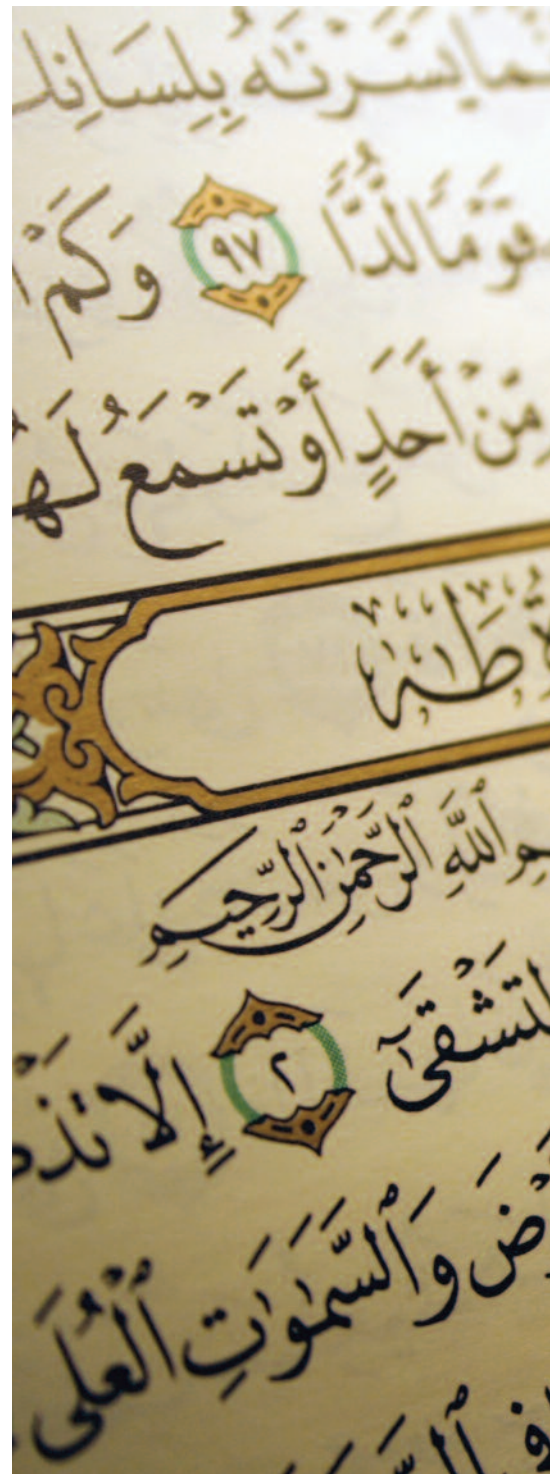 يَسَّرْنَٰهُ بِلِسَانِكَ
قَوْمًا لُّدًّا ٩٧ وَكَمْ
مِّنْ أَحَدٍ أَوْ تَسْمَعُ لَهُمْ
طه
ٱللَّهِ ٱلرَّحْمَٰنِ ٱلرَّحِيمِ
لِتَشْقَىٰٓ ٢ إِلَّا
وَٱلسَّمَٰوَٰتِ ٱلْعُلَى